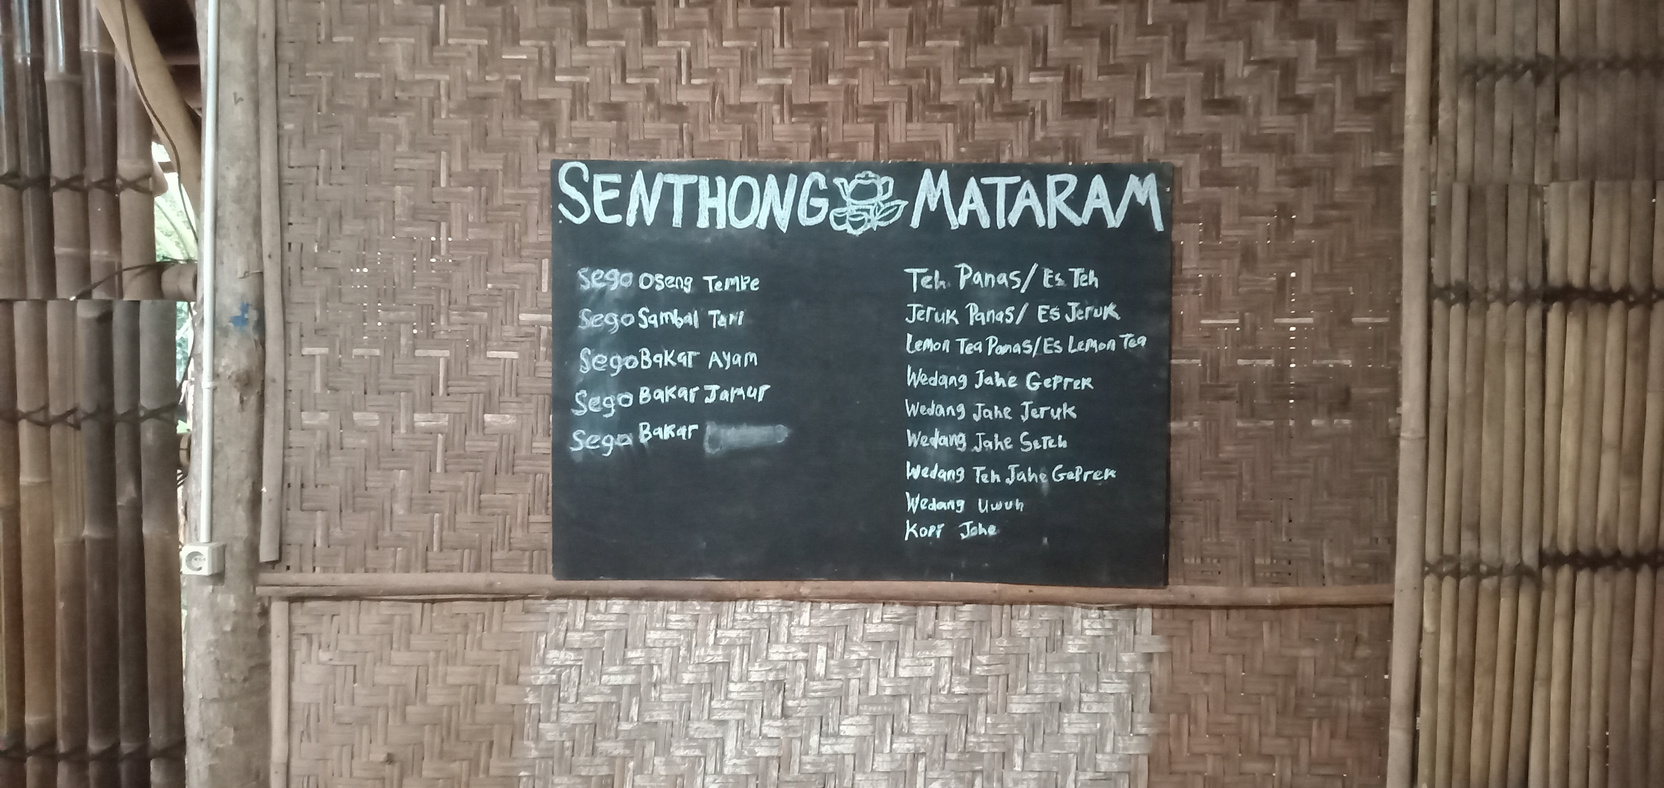 SENTHONG MATARAM
Sego Oseng Tempe
Sego Sambal Teri
Sego Bakar Ayam
Sego Bakar Jamur
Sego Bakar
Teh Panas/Es Teh
Jeruk Panas/Es Jeruk
Lemon Tea Panas/Es Lemon Tea
Wedang Jahe Geprek
Wedang Jahe Jeruk
Wedang Jahe Sereh
Wedang Teh Jahe Geprek
Wedang Uwuh
Kopi Jahe